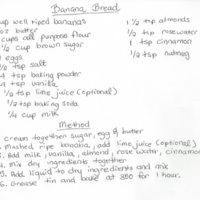 Banana Bread
up well riped bananas
oz butter
cups all purpose flour
1/2 cup brown sugar
eggs
1/2 tsp salt
tsp baking powder
tsp vanilla
1/2 tsp lime juice (optional)
1/2 tsp baking soda
1/4 cup milk
1 1/2 tsp almonds
1/2 tsp rosewater
1 tsp cinnamon
1/2 tsp nutmeg
Method
cream together sugar, egg & butter
Mashed ripe banana, add lime juice (optional)
Add milk, vanilla, almond, rose water, cinnamon
4. Mix dry ingredients together
5. Add liquid to dry ingredients and mix
6. Grease tin and bake at 350 for 1 hour.